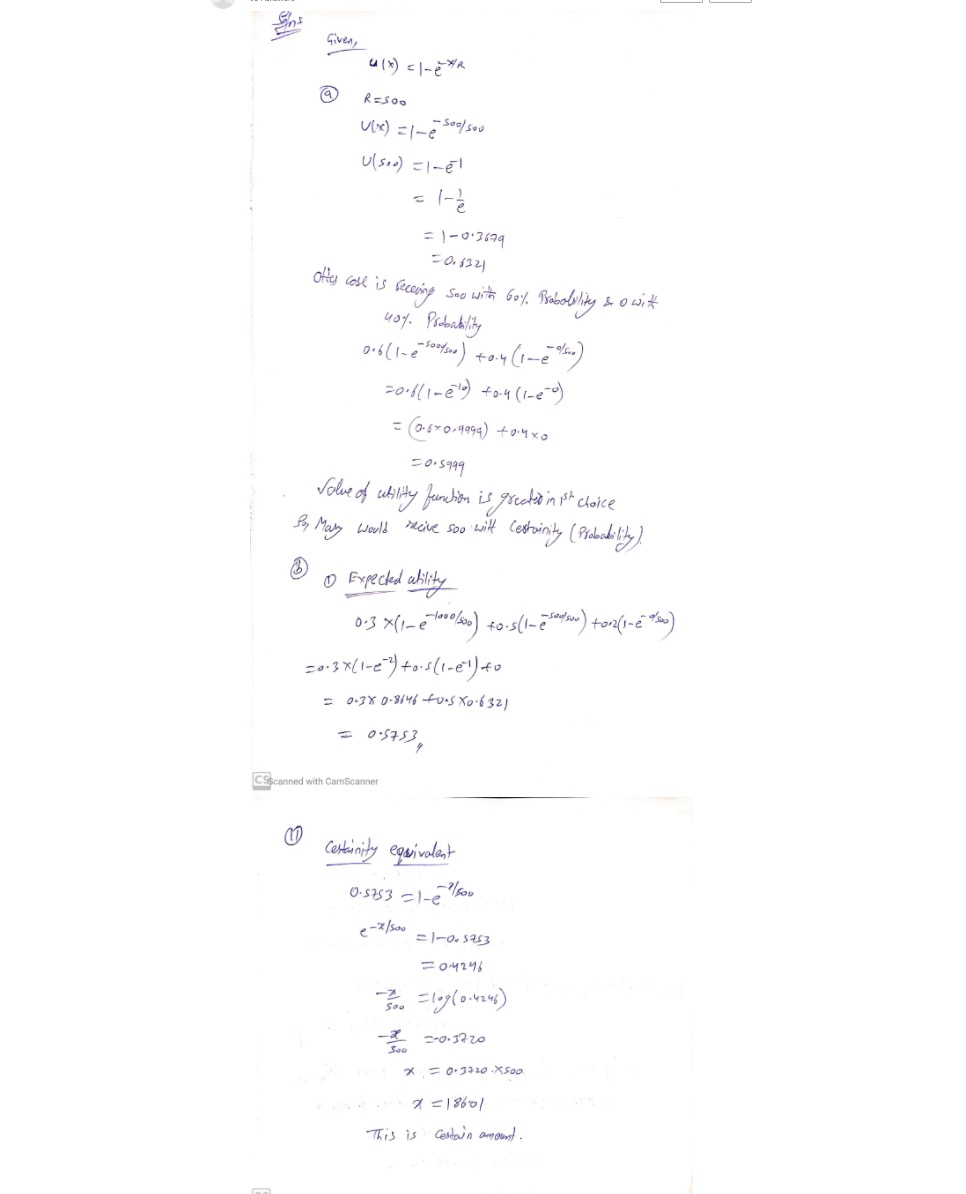 Ans
Given,
u(x) = 1-e^-x/R
(a) R=500
U(x) = 1-e^-500/500
U(500) = 1-e^-1
= 1-1/e
= 1-0.3679
=0.6321
Other case is receving 500 with 60%. Probability & 0 with
40%. Probability
0.6(1-e^-5000/500) +0.4(1-e^-0/500)
=0.6(1-e^-10) +0.4(1-e^-0)
= (0.6×0.9999) +0.4×0
=0.5999
Value of utility function is greater in 1st choice
So, Mary would recive 500 with Certainity (Probability).
(b) (i) Expected utility
0.3 ×(1-e^-1000/500) +0.5(1-e^-500/500) +0.2(1-e^-0/500)
=0.3×(1-e^-2)+0.5(1-e^-1)+0
= 0.3× 0.8646 +0.5×0.6321
= 0.5753
CS Scanned with CamScanner
(ii) Certainity equivalent
0.5753 =1-e^-x/500
e^-x/500 =1-0.5753
=0.4246
-x/500 =log(0.4246)
-x/500 =-0.3720
x = 0.3720 ×500
x =18601
This is Certain amount.
CS